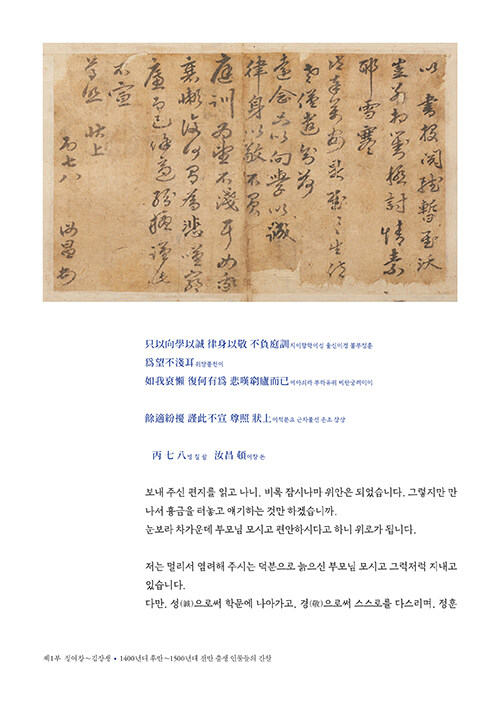 遠念只以向學以誠
律身以敬不負
庭訓爲望不淺耳如我
衰懶復何有爲悲嘆窮
廬而已餘適紛擾謹此
不宣
尊照 狀上
丙七八 汝昌頓
只以向學以誠 律身以敬 不負庭訓지이향학이성 율신이경 불부정훈
爲望不淺耳위망불천이
如我衰懶 復何有爲 悲嘆窮廬而已여아쇠라 부하유위 비탄궁려이이
餘適紛擾 謹此不宣 尊照 狀上여적분요 근차불선 존조 장상
丙 七 八병 칠 팔 汝昌 頓여창 돈
보내 주신 편지를 읽고 나니, 비록 잠시나마 위안은 되었습니다. 그렇지만 만
나서 흉금을 터놓고 얘기하는 것만 하겠습니까.
눈보라 차가운데 부모님 모시고 편안하시다고 하니 위로가 됩니다.
저는 멀리서 염려해 주시는 덕분으로 늙으신 부모님 모시고 그럭저럭 지내고
있습니다.
다만, 성(誠)으로써 학문에 나아가고, 경(敬)으로써 스스로를 다스리며, 정훈
제1부 정여창~김장생 • 1400년대 후반~1500년대 전반 출생 인물들의 간찰